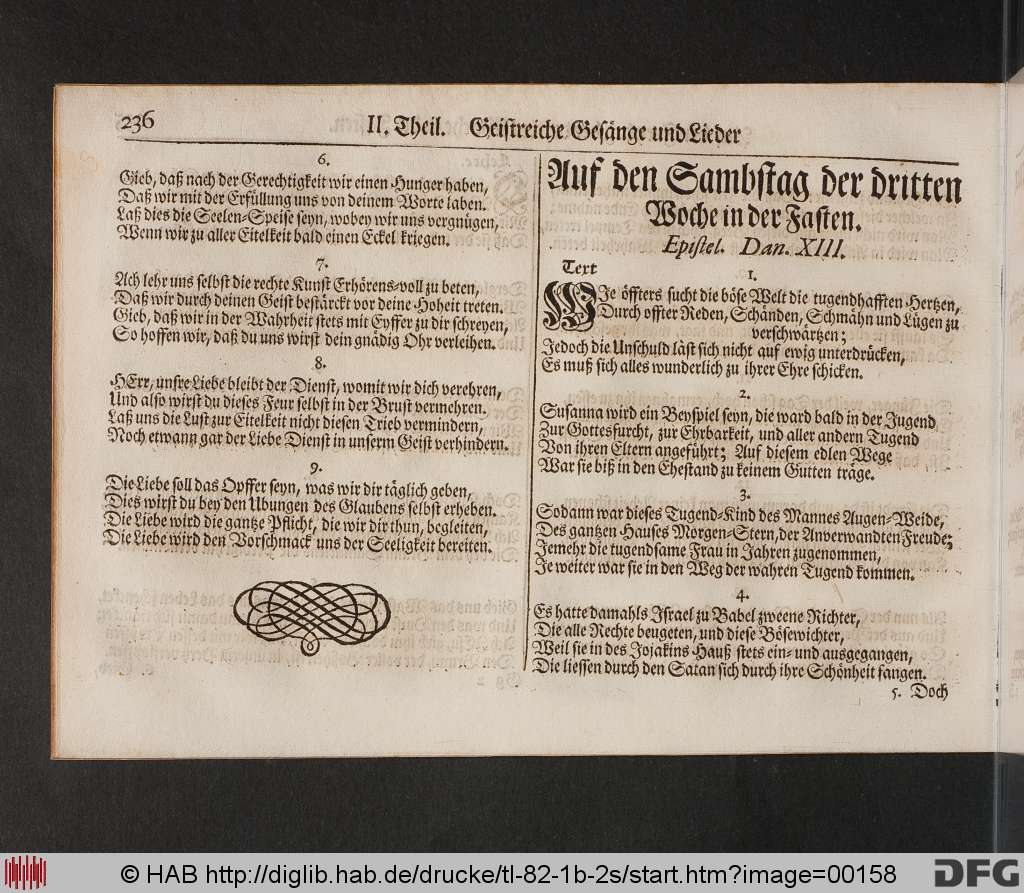 236
II. Theil. Geistreiche Gesänge und Lieder
6.
Gieb, daß nach der Gerechtigkeit wir einen Hunger haben,
Daß wir mit der Erfüllung uns von deinem Worte laben.
Laß dies die Seelen-Speise seyn, wobey wir uns vergnügen,
Wenn wir zu aller Eitelkeit bald einen Eckel kriegen.
7.
Ach lehr uns selbst die rechte Kunst Erhörens-voll zu beten,
Daß wir durch deinen Geist bestärckt vor deine Hoheit treten.
Gieb, daß wir in der Wahrheit stets mit Eyffer zu dir schreyen,
So hoffen wir, daß du uns wirst dein gnädig Ohr verleihen.
8.
HErr, unsre Liebe bleibt der Dienst, womit wir dich verehren,
Und also wirst du dieses Feur selbst in der Brust vermehren.
Laß uns die Lust zur Eitelkeit nicht diesen Trieb vermindern,
Noch etwann gar der Liebe Dienst in unserm Geist verhindern.
9.
Die Liebe soll das Opffer seyn, was wir dir täglich geben,
Dies wirst du bey den Ubungen des Glaubens selbst erheben.
Die Liebe wird die gantze Pflicht, die wir dir thun, begleiten,
Die Liebe wird den Vorschmack uns der Seeligkeit bereiten.
Auf den Sambstag der dritten
Woche in der Fasten.
Epistel. Dan. XIII.
Text
1.
WIe öffters sucht die böse Welt die tugendhafften Hertzen,
Durch offter Reden, Schänden, Schmähn und Lügen zu
verschwärtzen;
Jedoch die Unschuld läst sich nicht auf ewig unterdrücken,
Es muß sich alles wunderlich zu ihrer Ehre schicken.
2.
Susanna wird ein Beyspiel seyn, die ward bald in der Jugend
Zur Gottesfurcht, zur Ehrbarkeit, und aller andern Tugend
Von ihren Eltern angeführt; Auf diesem edlen Wege
War sie biß in den Ehestand zu keinem Gutten träge.
3.
Sodann war dieses Tugend-Kind des Mannes Augen-Weide,
Des gantzen Hauses Morgen-Stern, der Anverwandten Freude;
Jemehr die tugendsame Frau in Jahren zugenommen,
Je weiter war sie in den Weg der wahren Tugend kommen.
4.
Es hatte damahls Israel zu Babel zweene Richter,
Die alle Rechte beugeten, und diese Bösewichter,
Weil sie in des Jojakins Hauß stets ein- und ausgegangen,
Die liessen durch den Satan sich durch ihre Schönheit fangen.
5. Doch
© HAB http://diglib.hab.de/drucke/tl-82-1b-2s/start.htm?image=00158
DFG